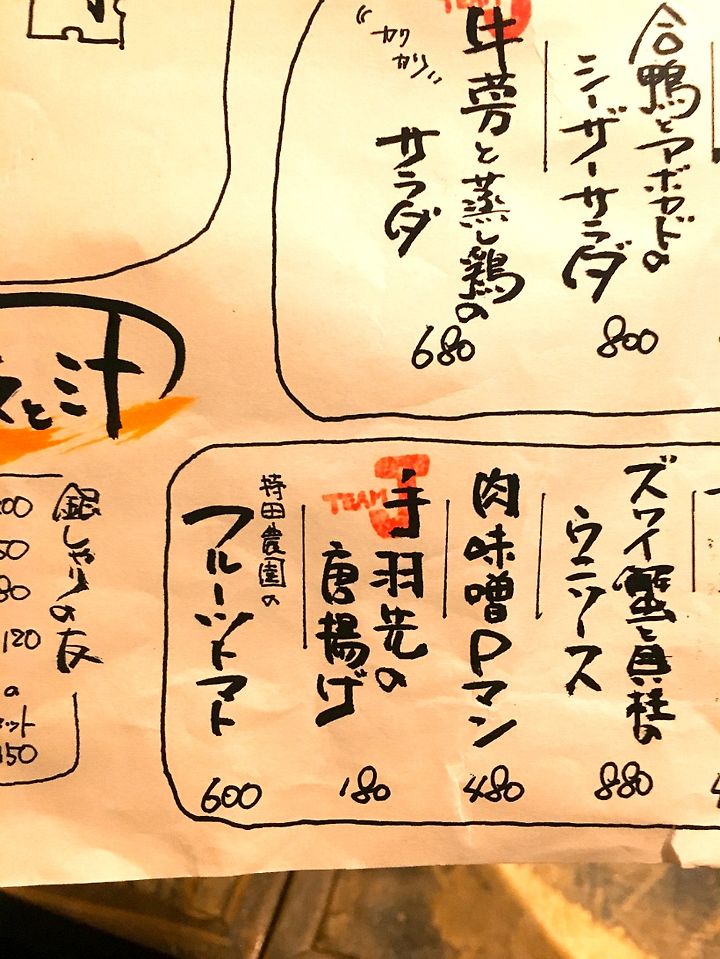 合鴨とアボカドの
シーザーサラダ
800
TEAM
牛蒡と蒸し鶏の
"カリカリ"
サラダ
680
ズワイ蟹と貝柱の
ウニソース
880
肉味噌Pマン
480
TEAM J
手羽先の
唐揚げ
180
持田農園の
フルーツトマト
600
と汁
銀しゃりの友
120